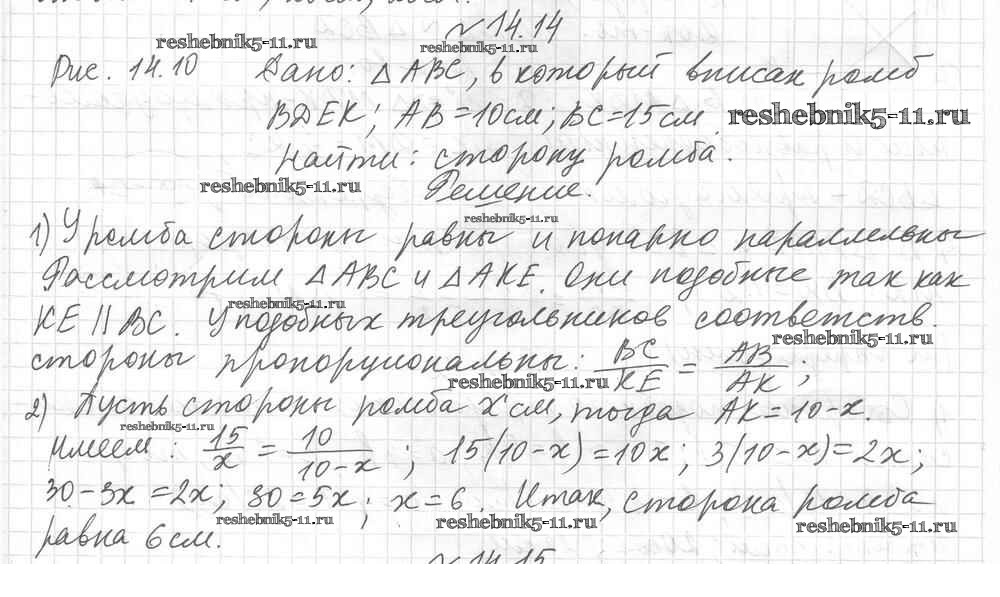 № 14.14
reshebnik5-11.ru reshebnik5-11.ru
Рис. 14.10 Дано: △ABC, в который вписан ромб
BDEK; AB=10см; BC=15см. reshebnik5-11.ru
Найти: сторону ромба.
reshebnik5-11.ru Решение.
reshebnik5-11.ru
1) У ромба стороны равны и попарно параллельны
Рассмотрим △ABC и △AKE. Они подобные так как
reshebnik5-11.ru
KE || BC. У подобных треугольников соответств.
reshebnik5-11.ru
стороны пропорциональны: BC/KE = AB/AK;
reshebnik5-11.ru
2) Пусть стороны ромба x см, тогда AK=10-x.
reshebnik5-11.ru
Имеем: 15/x = 10/(10-x); 15(10-x)=10x; 3(10-x)=2x;
30-3x=2x; 30=5x; x=6. Итак, сторона ромба
reshebnik5-11.ru reshebnik5-11.ru reshebnik5-11.ru
равна 6см.
№ 14.15